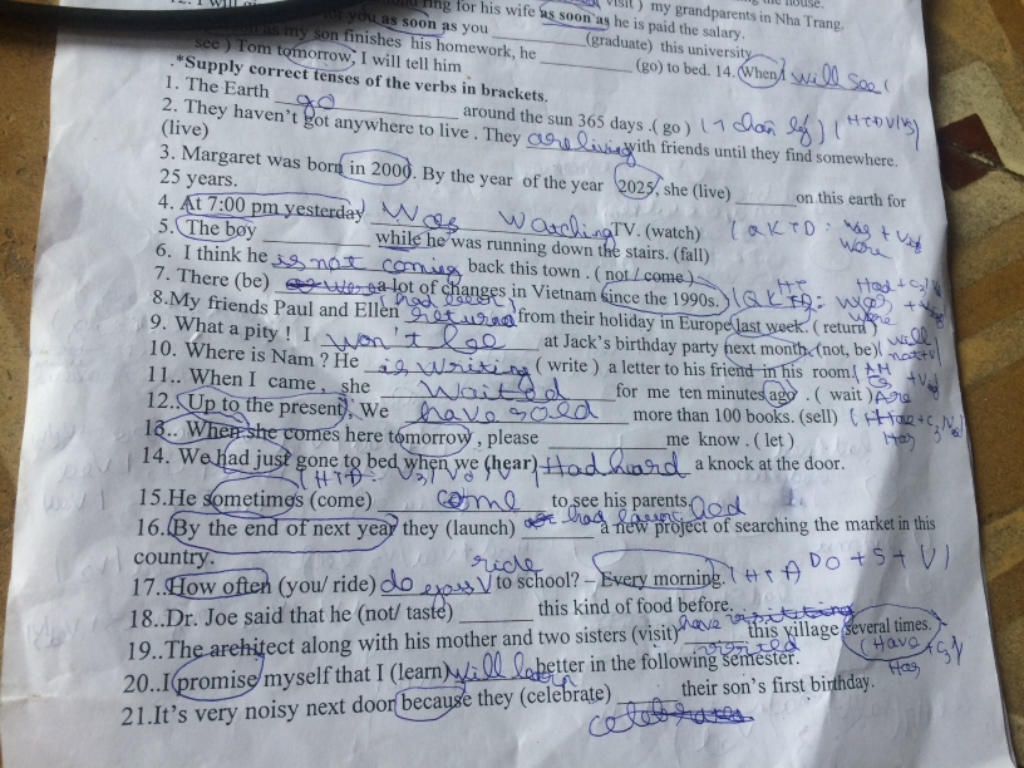 ring for his wife as soon as he is paid the salary.
visit ) my grandparents in Nha Trang.
for you as soon as you ________ (graduate) this university
as my son finishes his homework, he ________ (go) to bed. 14. When I will see (
see ) Tom tomorrow, I will tell him
.*Supply correct tenses of the verbs in brackets.
1. The Earth go around the sun 365 days .( go )
2. They haven't got anywhere to live . They are living with friends until they find somewhere.
(live)
3. Margaret was born in 2000. By the year of the year 2025, she (live) ______ on this earth for
25 years.
4. At 7:00 pm yesterday Was Watching TV. (watch) ( QKTD : was + Ving
were
5. The boy __________ while he was running down the stairs. (fall)
6. I think he is not coming back this town . ( not / come )
7. There (be) a lot of changes in Vietnam since the 1990s.
(had been)
8.My friends Paul and Ellen returned from their holiday in Europe last week. ( return )
9. What a pity ! I won't be at Jack's birthday party next month. (not, be)( will
not+V)
10. Where is Nam ? He is writing ( write ) a letter to his friend in his room.
11.. When I came , she waited for me ten minutes ago . ( wait )
12.. Up to the present, We have sold more than 100 books. (sell)
13.. When she comes here tomorrow , please __________ me know . ( let )
14. We had just gone to bed when we (hear) Had heard a knock at the door.
15.He sometimes (come) come to see his parents.
16..By the end of next year they (launch) had a new project of searching the market in this
country.
17..How often (you/ ride) do you ride to school? – Every morning. DO + S + V
18..Dr. Joe said that he (not/ taste) ______ this kind of food before.
19..The architect along with his mother and two sisters (visit) have visited this village several times.
(Have
Has
20..I promise myself that I (learn) will learn better in the following semester.
21.It's very noisy next door because they (celebrate) ______ their son's first birthday.